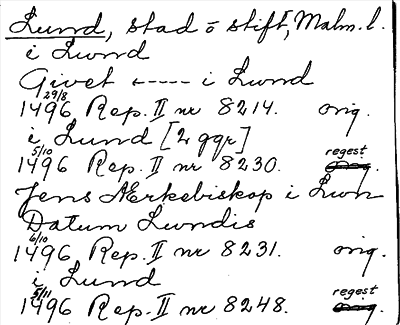 Lund, stad o stift, Malm. l.
i Lund
Givet <----- i Lund
29/8
1496 Rep. II nr 8214. orig.
i Lund [2 ggr]
5/10 regest
1496 Rep. II nr 8230. orig.
Jens Ærkebiskop i Lun
Datum Lundis
6/10
1496 Rep. II nr 8231. orig.
i Lund
5/11 regest
1496 Rep. II nr 8248. orig.